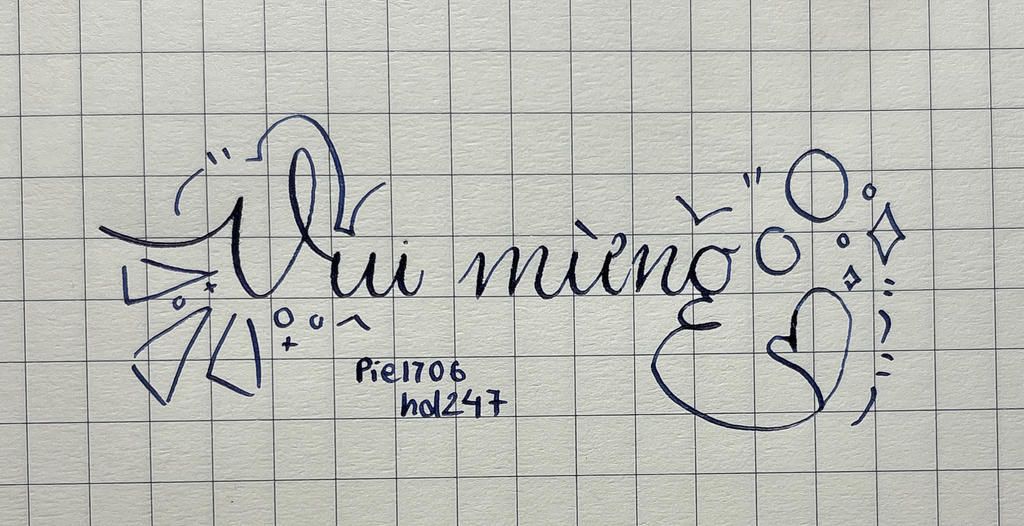 Vui mừng
Pie1706
hol247